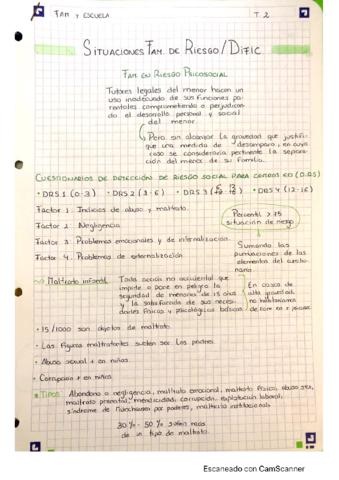 FAM Y ESCUELA
T 2
SITUACIONES FAM. DE RIESGO / DIFIC
FAM EN RIESGO PSICOSOCIAL
Tutores legales del menor hacen un
uso inadecuado de sus funciones pa-
rentales comprometiendo o perjudican-
do el desarrollo personal y social
del menor.
Pero sin alcanzar la gravedad que justifi-
que una medida de desamparo, en cuyo
caso se consideraría pertinente la separa-
ción del menor de su familia.
CUESTIONARIOS DE DETECCIÓN DE RIESGO SOCIAL PARA
• DRS 1 (0-3) • DRS 2 (3-6) • DRS 3 • DRS 4 (12-16)
Factor 1. Indicios de abuso y maltrato.
Percentil > 75
situación de riesgo
Factor 2. Negligencia.
Factor 3. Problemas emocionales y de internalización.
Sumando las
puntuaciones de los
elementos del cuestio-
nario
Factor 4. Problemas de externalización.
Maltrato infantil
Toda acción no accidental que
impide o pone en peligro la
seguridad de menores de 18 años
y la satisfacción de sus necesi-
dades físicas y psicológicas básicas
En casos de
alta gravedad,
• 15/1000 son objetos de maltrato.
• Las figuras maltratantes suelen ser los padres.
• Abuso sexual + en niñas.
• Corrupción + en niños.
• TIPOS: Abandono o negligencia, maltrato emocional, maltrato físico, abuso sex,
maltrato prenatal, mendicidad, corrupción, explotación laboral,
síndrome de Münchausen por poderes, maltrato institucional.
30% - 50% sufren más
de un tipo de maltrato.
Escaneado con CamScanner